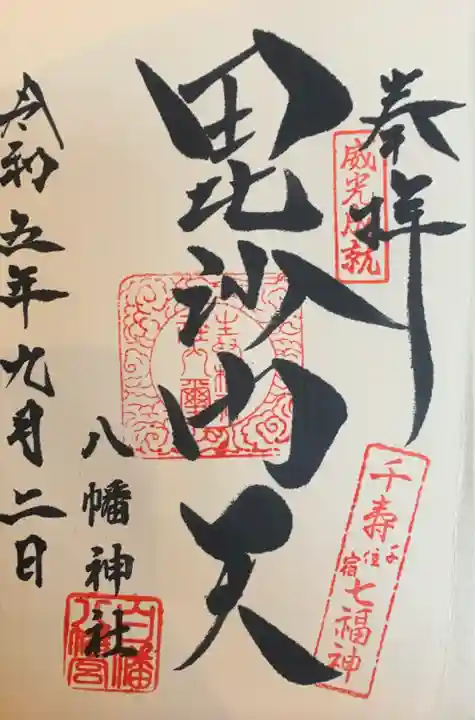 奉拝
威光成就
毘沙门天
千寿七福神
千住宿
八幡神社
白幡八幡宮
令和五年九月二日